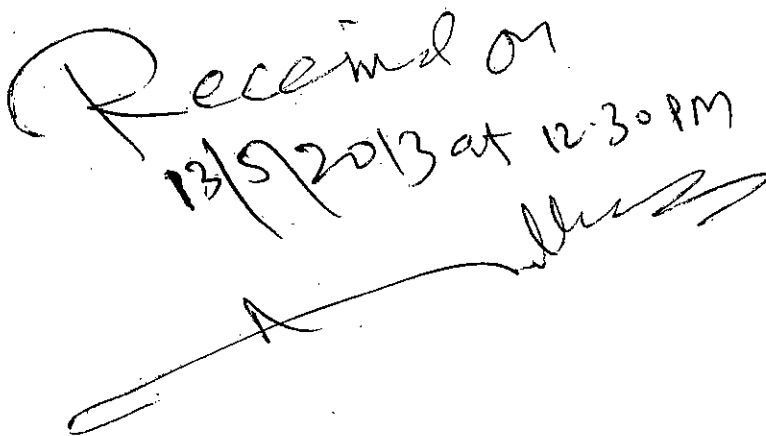 Received on
13/5/2013 at 12.30 PM